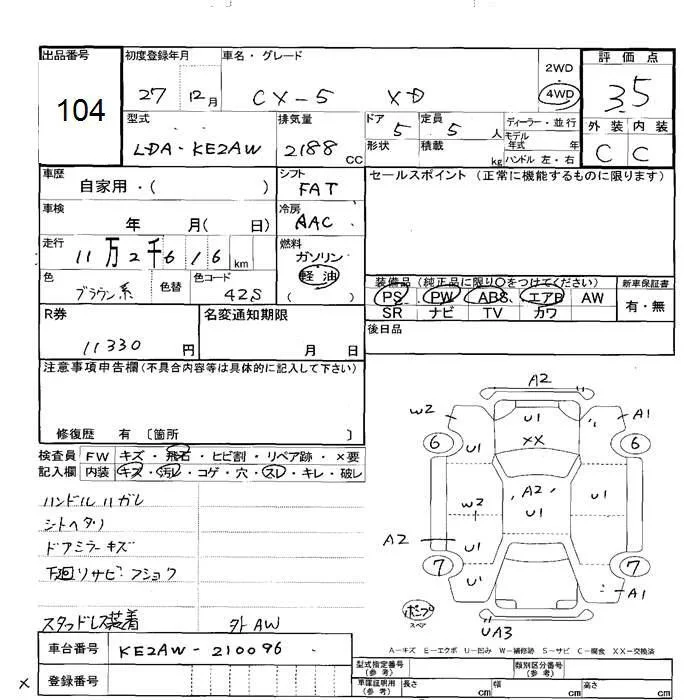 出品番号
104
初度登録年月
27 12月
車名・グレード
CX-5 XD
2WD
4WD
評価点
3.5
外装 内装
C C
型式
LDA-KE2AW
排気量
2188 CC
ドア 5
定員 5 人
形状
積載 kg
ディーラー・並行
モデル年式 年
ハンドル 左・右
車歴
自家用・( )
シフト
FAT
セールスポイント (正常に機能するものに限ります)
車検
年 月( 日)
冷房
AAC
走行
11万2千616 km
燃料
ガソリン
軽油
( )
色
ブラウン系
色替
色コード
42S
装備品 (純正品に限り○をつけてください)
PS PW ABS エアB AW
SR ナビ TV カワ
新車保証書
有・無
R券
11330 円
名変通知期限
月 日
後日品
注意事項申告欄(不具合内容等は具体的に記入して下さい)
修復歴 有 〔箇所 〕
検査員記入欄
FW キズ・飛石・ヒビ割・リペア跡・×要
内装 キズ・汚レ・コゲ・穴・スレ・キレ・破レ
ハンドルハガレ
シトヘタリ
ドアミラーキズ
下廻リサビ・フショク
スタッドレス装着 外AW
A2
W2
U1
A1
XX
6
U1
6
W2
A2
U1
U1
A2
U1
7
U1
7
A1
ポンプ
スペア
UA3
A-キズ E-エクボ U-凹み W-補修跡 S-サビ C-腐食 XX-交換済
車台番号
KE2AW-210096
型式指定番号(参考)
類別区分番号(参考)
×
登録番号
車庫証明用(参考)
長さ cm
幅 cm
高さ cm